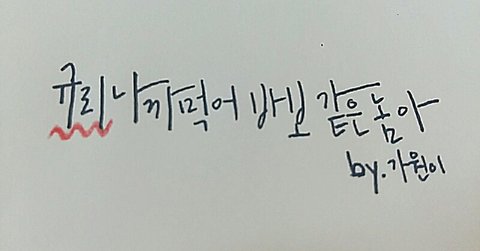 규리나까먹어 바보 같은 놈아
by.가원이